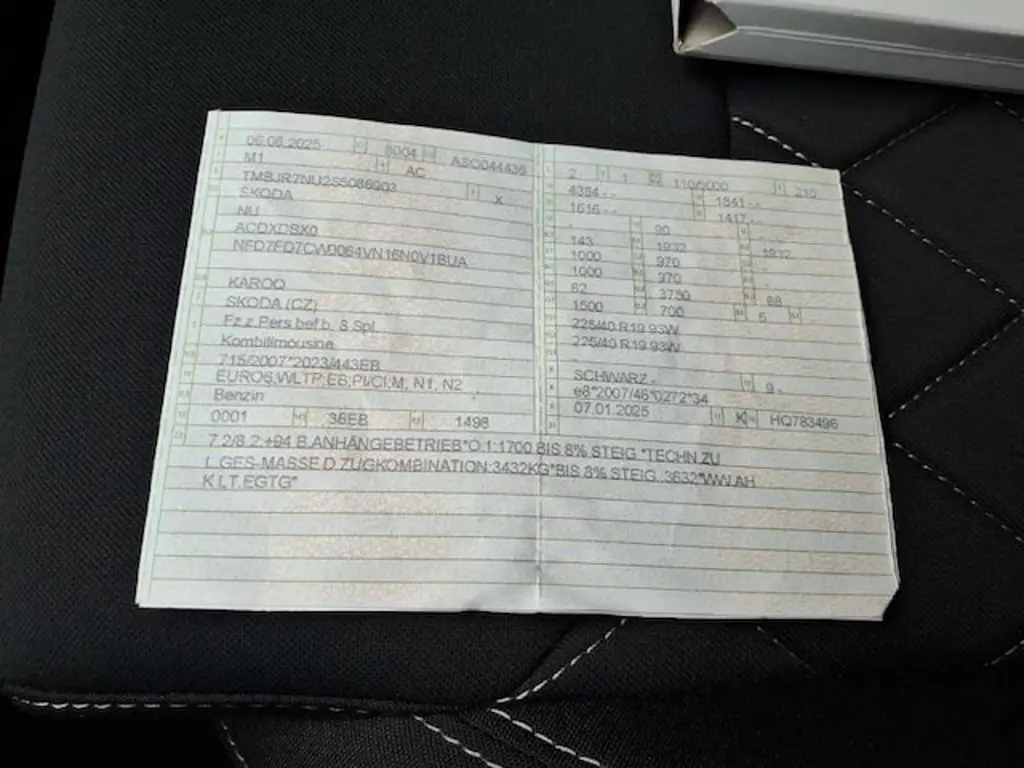 06.08.2025 8004 ASO044436
M1 AC
TMBJR7NU255086903 X
SKODA
NU
ACDXDBX0
NFD7FD7CWD064VN16N0V1BUA
KAROQ
SKODA (CZ)
Fz.z.Pers.bef.b. 8 Spl.
Kombilimousine
715/2007*2023/443EB
EURO6,WLTP,EB,PI/CI,M, N1, N2
Benzin
0001 36EB 1498
2 1 110/5000 210
4384 - - 1841 - -
1616 - - 1417 - -
- 90 - -
143 1932 1932
1000 970 -
1000 970 -
62 3750 68
1500 700 5
225/40 R19 93W
225/40 R19 93W
SCHWARZ - 9 -
e8*2007/46*0272*34
07.01.2025 K HQ783496
7.2/8.2:+94 B.ANHÄNGEBETRIEB*O.1:1700 BIS 8% STEIG.*TECHN.ZU
L.GES-MASSE D.ZUGKOMBINATION:3432KG*BIS 8% STEIG.:3632*WW.AH
K LT.EGTG*